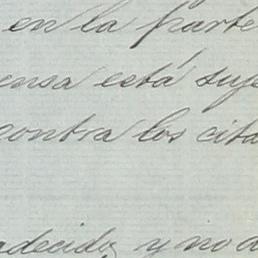 en la parte
ensa está suje
contra los cita
adecido, y no d